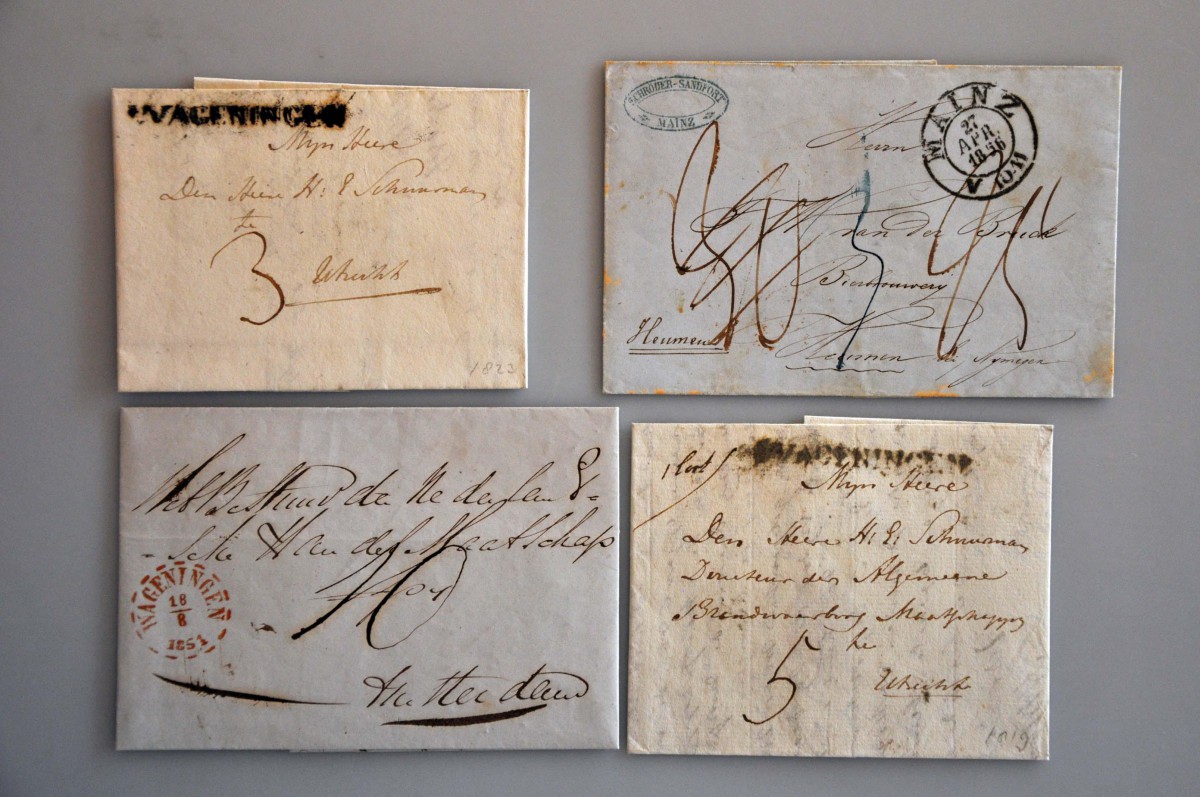 WAGENINGEN
Myn Heere
Den Heere H: E Schuurman
te
3
Utrecht
1823
SCHRÖDER-SANDFORT
MAINZ
MAINZ
27
APR.
1856
10-11
Herrn
van der Bruck
Bierbrouwery
Heumen
Heumen
WAGENINGEN
18
8
1851
Het Bestuur der Nederlan d=
=sche Handel Maatschap
10
Amsterdam
WAGENINGEN
1 loot
Myn Heere
Den Heere H: E: Schuurman
Directeur der Algemeene
Brandwaarborg Maatschappy
te
5
Utrecht
1819